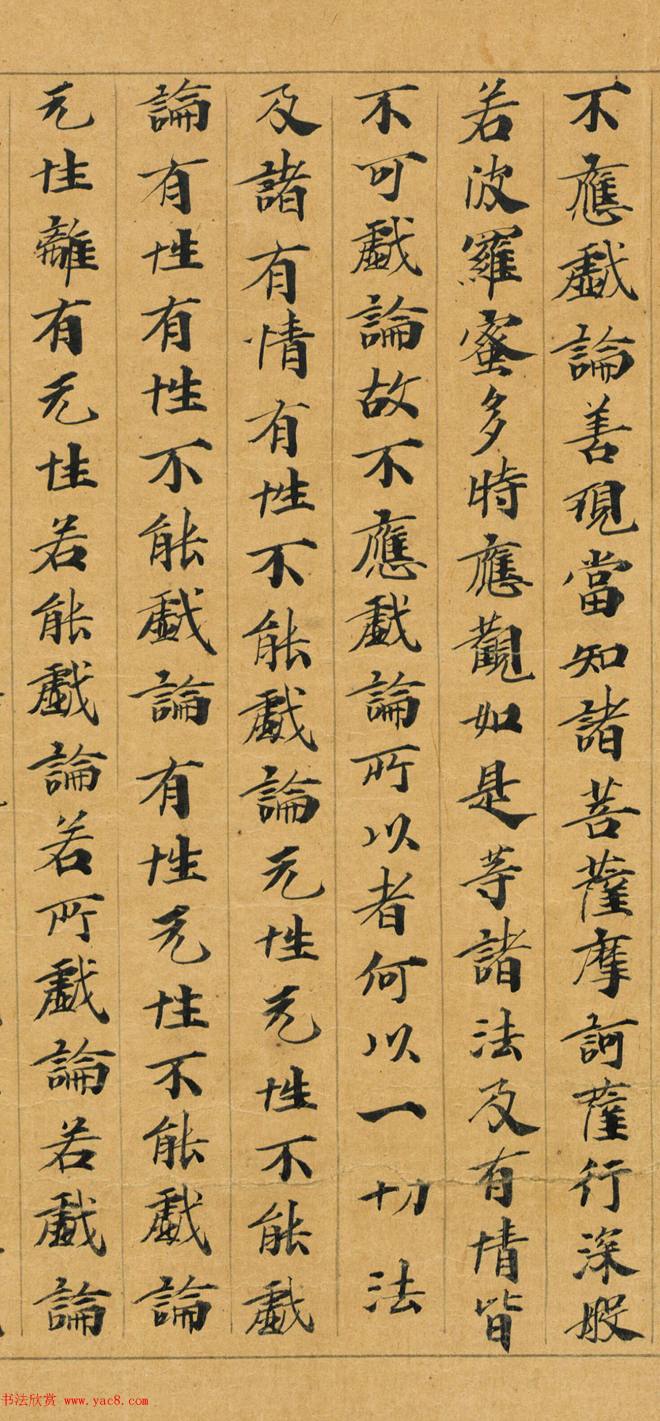 不應戲論善現當知諸菩薩摩訶薩行深般
若波羅蜜多時應觀如是等諸法及有情皆
不可戲論故不應戲論所以者何以一切法
及諸有情有性不能戲論无性无性不能戲
論有性有性不能戲論有性无性不能戲論
无性離有无性若能戲論若所戲論若戲論
书法欣赏 www.yac8.com